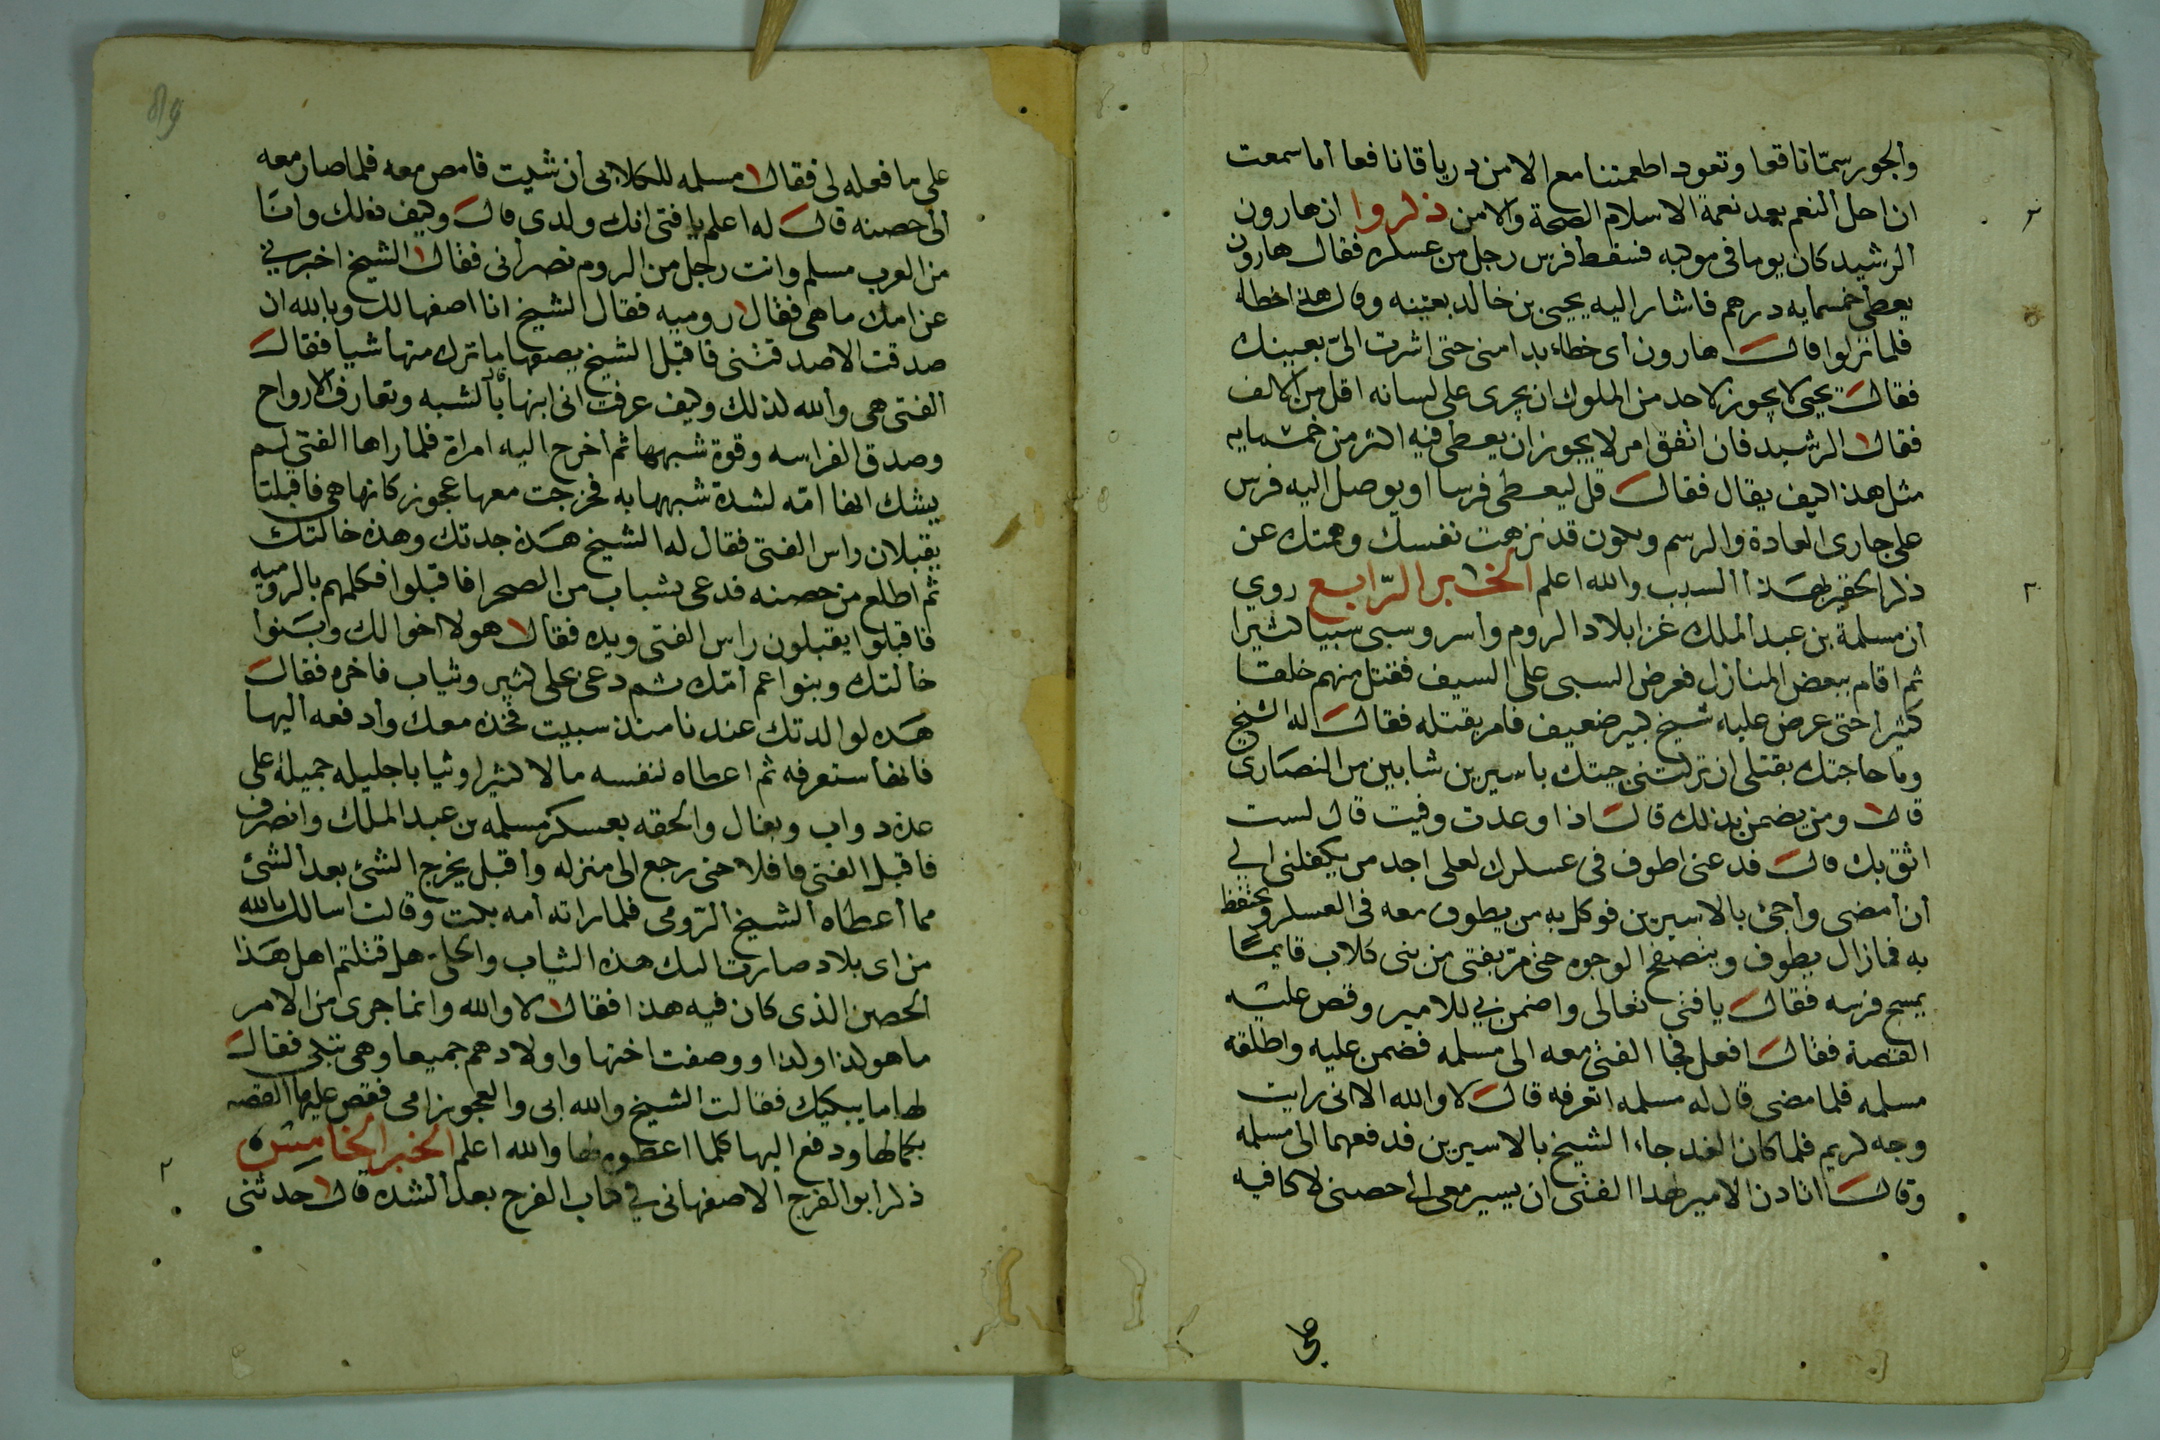 وألجور سمّا ناقعا وتعود اطعمتنا مع الامن درياقا نافعا أما سمعت
ان احل ألنعم بعد نعمة الاسلام الصحة والامن ذلروا ان هارون
الرشيد كان يوما فى موكبه فسقط فرس رجل من عسكره فقال هارون
يعطى خمسمايه درهم فاشار اليه يحيى بن خالد بعينه وقال هذا خطاء
فلما نزلوا قال هارون أى خطاء بدا منى حتى اشرت الىّ بعينك
فقال يحيى لا يجوز لاحد من الملوك ان يجرى على لسانه اقل من الالف
فقال الرشيد فان اتفق امر لا يجوز ان يعطى فيه اكثر من خمسمايه
مثل هذا كيف يقال فقال قل ليعطى فرسا او يوصل اليه فرس
على جارى العادة والرسم وتكون قد نزهت نفسك وهمتك عن
ذكر الحقير بهذا ألسبب والله اعلم الخبر الرّابع روي
أن مسلمة بن عبد الملك غزا بلاد الروم وأسر وسبى سبيا كثيرا
ثم اقام ببعض المنازل فعرض السبى على السيف فقتل منهم خلقا
كثيرا حتى عرض عليه شيخ كبير ضعيف فامر بقتله فقال له الشيخ
وما حاجتك بقتلى ان تركتنى جيتك باسيرين شابين من النصارى
قال ومن يضمن بذلك قال اذا وعدت وفيت قال لست
اثق بك قال فدعنى اطوف فى عسكرك لعلى اجد من يكفلنى الي
أن أمضى وأجئ بالاسيرين فوكل به من يطوف معه فى العسكر ويحتفظ
به فمازال يطوف ويتصفح الوجوه حتى مرّ بفتى من بنى كلاب قايمًا
يمسح فرسه فقال يا فتى تعالى واضمنني للامير وقص عليه
القصة فقال افعل فجا الفتى معه الى مسلمه فضمن عليه واطلقه
مسلمه فلما مضى قال له مسلمه اتعرفه قال لا والله الا انى رايت
وجه كريم فلما كان الغد جاء الشيخ بالاسيرين فدفعهما الى مسلمه
وقال انا ذن الامير لهذا الفتى ان يسير معى الى حصنى لا كافيه
على
على ما فعله لى فقال مسلمه للكلابى أن شيت فامض معه فلما صار معه
الى حصنه قال له اعلم يا فتى انك ولدى قال وكيف ذلك وانا
من العرب مسلم وانت رجل من الروم نصرأنى فقال الشيخ اخبرني
عن امك ما هى فقال روميه فقال الشيخ انا اصفها لك وبالله ان
صدقت الا صدقتنى فاقبل الشيخ يصفها ما ترك منها شيا فقال
الفتى هى والله لذلك وكيف عرفت انى ابنها بألشبه وتعارف الارواح
وصدق الفراسه وقوة شبهها ثم أخرج اليه امراة فلما راها الفتى لم
يشك انها امّه لشدة شبهها به فخرجت معها عجوز كانها هى فاقبلتا
يقبلان راس الفتى فقال له الشيخ هذه جدتك وهذه خالتك
ثم اطلع من حصنه فدعى بشباب من الصحرا فاقبلوا فكلمهم بالروميه
فاقبلوا يقبلون راس الفتى ويده فقال هولا اخوالك وبنوا
خالتك وبنوا عم أمّك ثم دعى بحلى كثير وثياب فاخره فقال
هذه لوالدتك عندنا منذ سبيت فخذه معك وأدفعه أليها
فانها ستعرفه ثم اعطاه لنفسه مالا كثيرا وثيابا جليله جميلة على
عدة دواب وبغال والحقه بعسكر مسلمه بن عبد الملك وانصرف
فاقبل الفتى قافلا حتى رجع الى منزله وأقبل يخرج الشئ بعد ألشئ
مما أعطاه ألشيخ ألرّومى فلما راته أمه بكت وقالت أسالك بالله
من اى بلاد صارت اليك هذه الثياب والحلى هل قتلتم اهل هذا
ألحصن الذى كان فيه هذا فقال لا والله وانما جرى من الامر
ما هو لذا ولذا ووصفت اختها واولادهم جميعا وهى تبكى فقال
لها ما يبكيك فقالت الشيخ والله ابى والعجوز امى فقص عليها القصه
بكمالها ودفع اليها كلما اعطوه لها والله اعلم الخبر الخامس
ذكر أبو الفرج الاصفهانى في كتاب الفرج بعد ألشده قال حدثنى